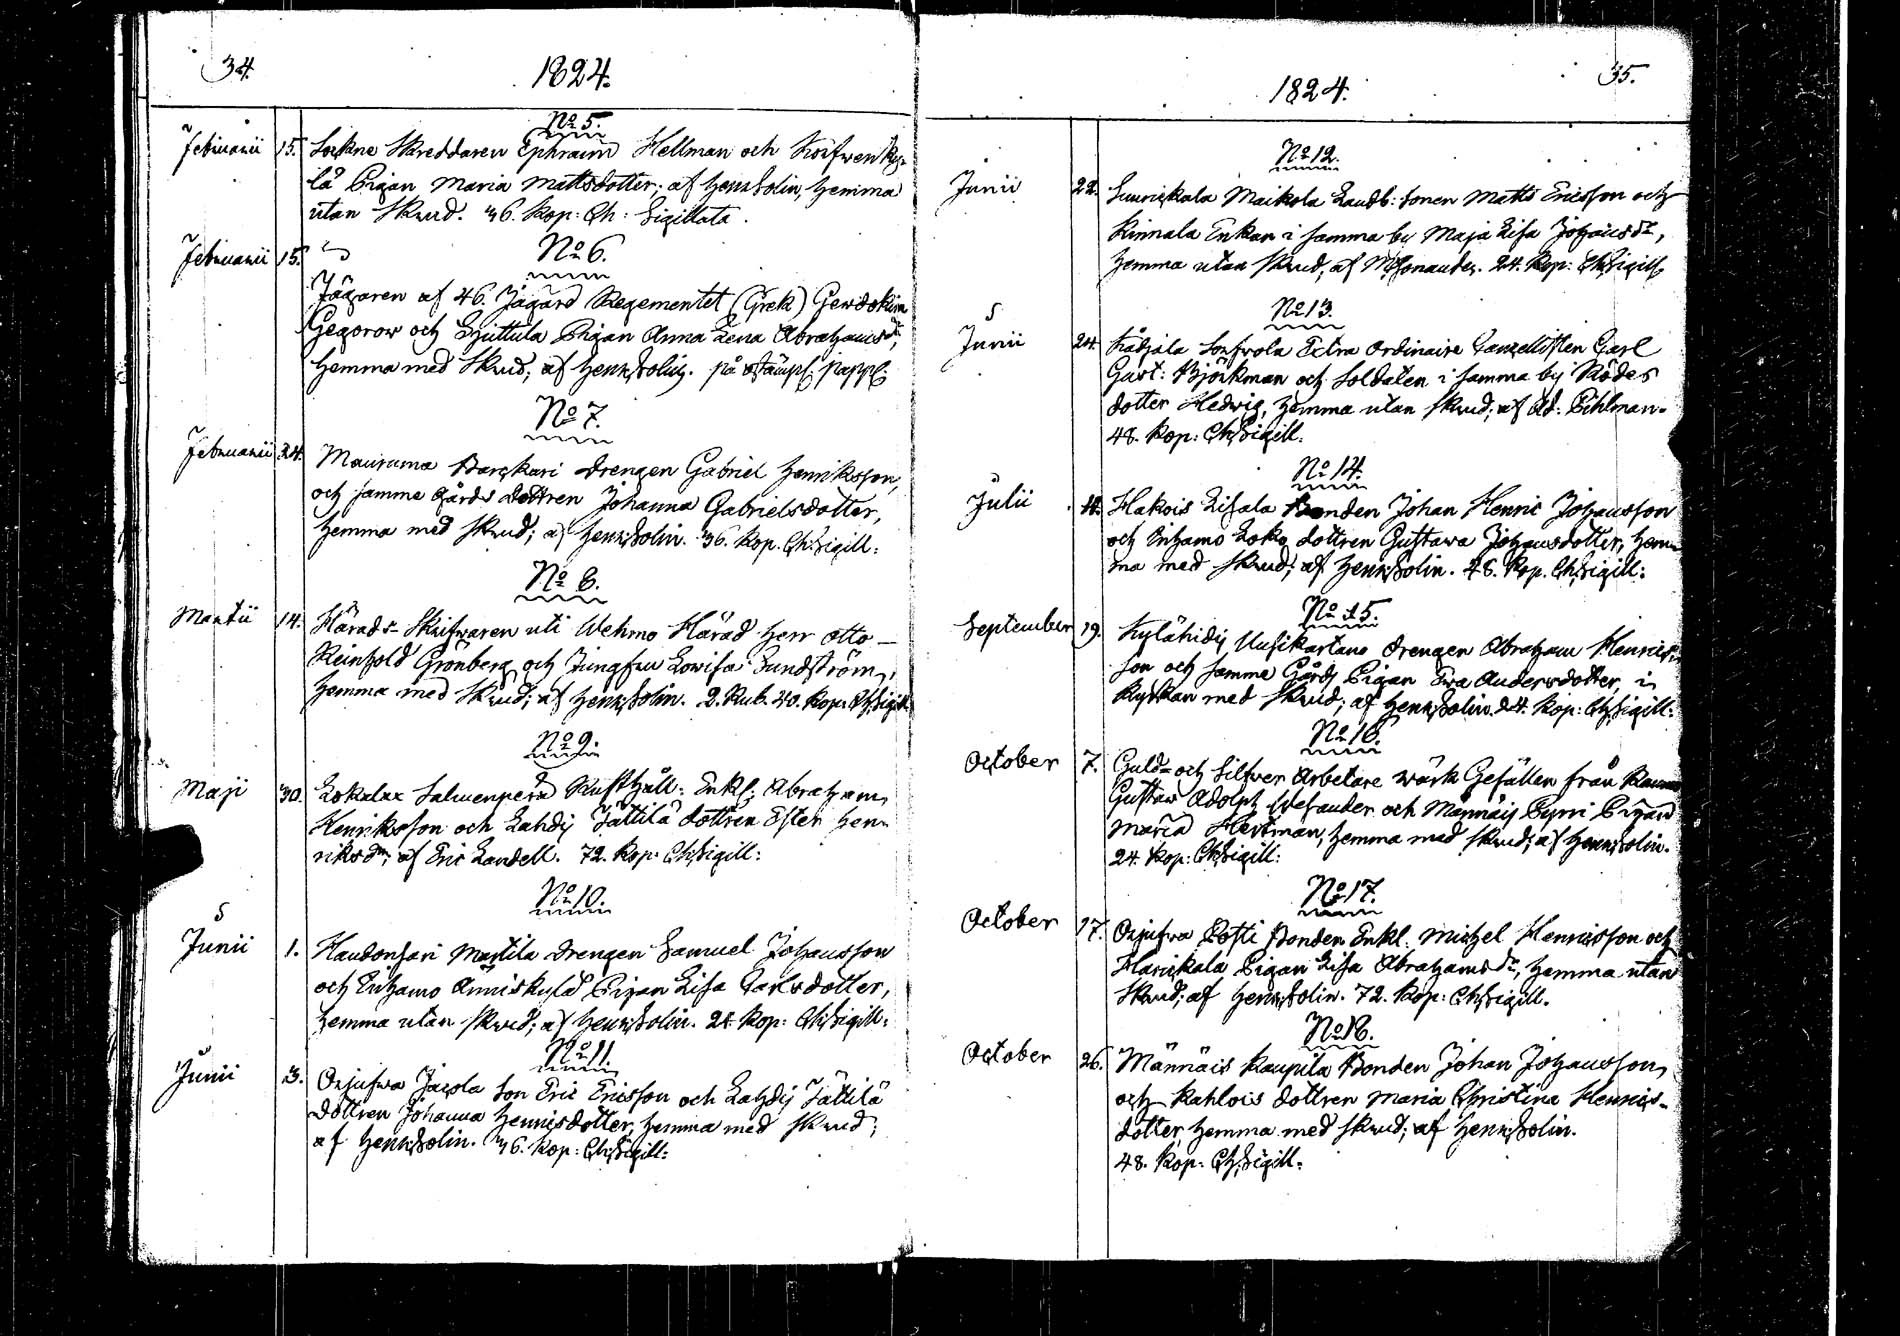 34.
1824.
No 5.
Februarii 15. Sockne Skreddaren Ephraim Hellman och Korfwenky-
lä Pigan Maria Mattsdotter; af Henr: Solin, hemma
utan Skrud. 36. Kop: Ch: Sigillata.
No 6.
Februarii 15.
Jägaren af 46. Jägare Regementet (Grek) Gewdokim
Gegorow och Spittula Pigan Anna Lena Abrahamsdr,
hemma med Skrud; af Henr: Solin. på stämpl: papp:
No 7.
Februarii 24. Mauruma Parckari Drengen Gabriel Henriksson,
och samme Gårds Dottren Johanna Gabrielsdotter,
hemma med Skrud; af Henr: Solin. 36. Kop. Ch: Sigill:
No 8.
Martii 14. Härads-Skrifwaren uti Wehmo Härad Herr Otto
Reinhold Grönberg och Jungfru Lowisa Sundström,
hemma med Skrud; af Henr: Solin. 2. Rub. 40. Kop: Ch: Sigill:
No 9.
Maji 30. Lokalax Salmenperä Rusthåll: Enkl: Abraham
Henriksson och Lahdis Jättilä dottren Ester Hen-
riksdr; af Eric Landell. 72. Kop: Ch: Sigill:
No 10.
Junii 1. Haudonsari Martila Drengen Samuel Johansson
och Inhamo Anniskylä Pigan Lisa Carlsdotter,
hemma utan Skrud; af Henr: Solin. 24. Kop: Ch: Sigill:
No 11.
Junii 3. Orjufwa Jacola Son Eric Ericsson och Lahdis Jättilä
Dottren Johanna Henricsdotter, hemma med Skrud;
af Henr: Solin. 36. Kop: Ch: Sigill:
35.
1824.
No 12.
Junii 22. Suurickala Maikola Landb: Sonen Matts Ericsson och
Kinnala Enkan i samma by Maja Lisa Johansdr,
hemma utan Skrud, af M: Jonander. 24. Kop: Ch: Sigill:
No 13.
Junii 24. Kådjala Sonfrola Extra Ordinaire Cancellisten Carl
Gust: Björkman och Soldaten i samma by Rödes
dotter Hedwig, hemma utan Skrud; af Ad: Pihlman.
48. Kop: Ch: Sigill:
No 14.
Julii 11. Hakois Lisala Bonden Johan Henric Johansson
och Inhamo Loko dottren Gustawa Johansdotter, hem-
ma med Skrud; af Henr: Solin. 48. Kop. Ch: Sigill:
No 15.
September 19. Kylähidis Uusikartano Drengen Abraham Henrics-
son och samme Gårds Pigan Ewa Andersdotter, i
Kyrkan med Skrud; af Henr: Solin. 24. Kop: Ch: Sigill:
No 16.
October 7. Guld- och Silfwer Arbetare wärk Gesällen från Raumo
Gustaw Adolph Welander och Männäis Pyrri Pigan
Maria Hertman, hemma med Skrud; af Henr: Solin.
24. Kop: Ch: Sigill:
No 17.
October 17. Orjufwa Posti Bonden Enkl: Michel Henricsson och
Harickala Pigan Lisa Abrahamsdr, hemma utan
Skrud; af Henr: Solin. 72. Kop: Ch: Sigill.
No 18.
October 26. Männäis Kaupila Bonden Johan Johansson,
och Kahlois dottren Maria Christina Henrics-
dotter, hemma med Skrud; af Henr: Solin.
48. Kop: Ch: Sigill: